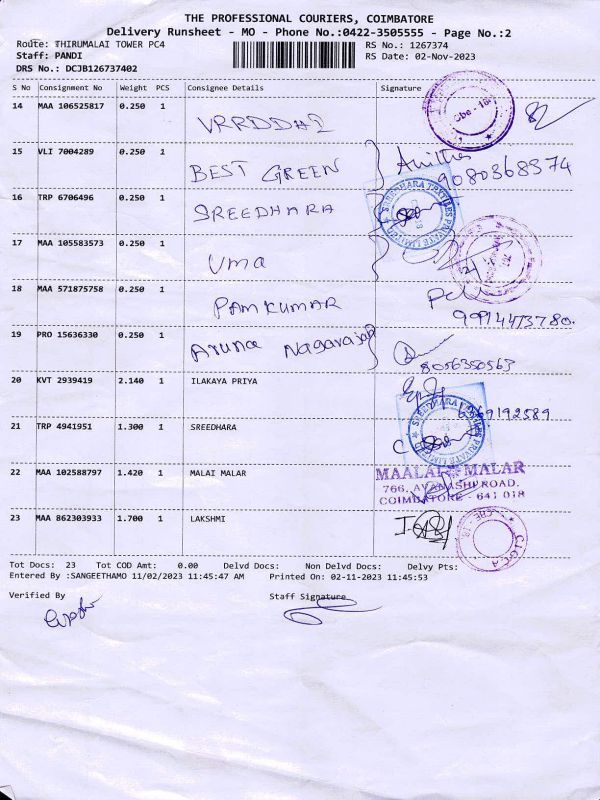 THE PROFESSIONAL COURIERS, COIMBATORE
Delivery Runsheet - MO - Phone No.:0422-3505555 - Page No.:2
Route: THIRUMALAI TOWER PC4 RS No.: 1267374
Staff: PANDI RS Date: 02-Nov-2023
DRS No.: DCJB126737402
S No Consignment No Weight PCS Consignee Details Signature
14 MAA 106525817 0.250 1 VRRDDHI
15 VLI 7004289 0.250 1 BEST GREEN Anitha
9080368374
16 TRP 6706496 0.250 1 SREEDHARA SREEDHARA TEXTILES PRIVATE LIMITED
17 MAA 105583573 0.250 1 Uma
18 MAA 571875758 0.250 1 RAMKUMAR
9991443780.
19 PRO 15636330 0.250 1 Aruna Nagarajan
8056350563
20 KVT 2939419 2.140 1 ILAKAYA PRIYA
6369192589
21 TRP 4941951 1.300 1 SREEDHARA SREEDHARA TEXTILES PRIVATE LIMITED
22 MAA 102588797 1.420 1 MALAI MALAR MAALAI MALAR
766, AVANASHI ROAD.
COIMBATORE - 641 018
23 MAA 862303933 1.700 1 LAKSHMI
Tot Docs: 23 Tot COD Amt: 0.00 Delvd Docs: Non Delvd Docs: Delvy Pts:
Entered By :SANGEETHAMO 11/02/2023 11:45:47 AM Printed On: 02-11-2023 11:45:53
Verified By Staff Signature